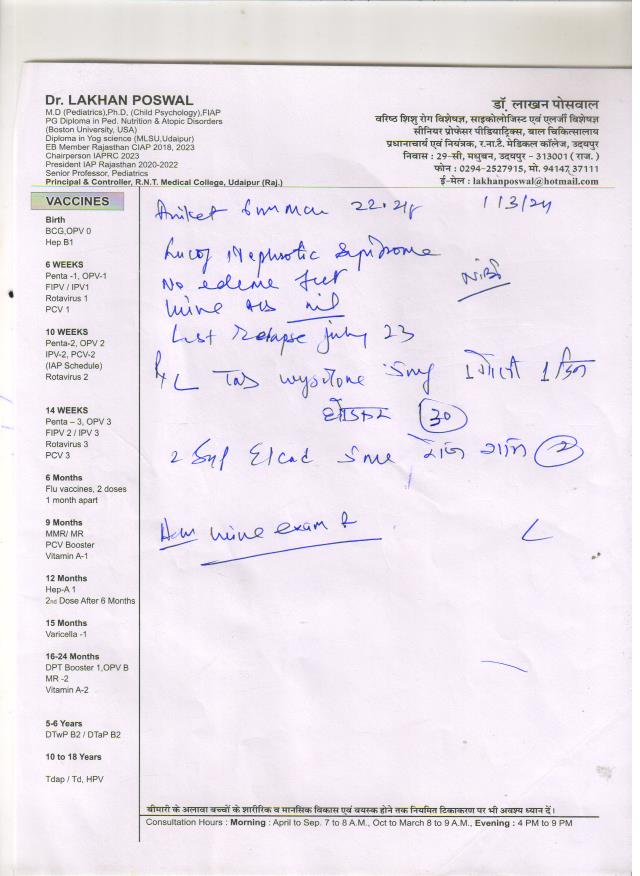 Dr. LAKHAN POSWAL
M.D (Pediatrics),Ph.D, (Child Psychology),FIAP
PG Diploma in Ped. Nutrition & Atopic Disorders
(Boston University, USA)
Diploma in Yog science (MLSU,Udaipur)
EB Member Rajasthan CIAP 2018, 2023
Chairperson IAPRC 2023
President IAP Rajasthan 2020-2022
Senior Professor, Pediatrics
Principal & Controller, R.N.T. Medical College, Udaipur (Raj.)
डॉ. लाखन पोसवाल
वरिष्ठ शिशु रोग विशेषज्ञ, साइकोलोजिस्ट एवं एलर्जी विशेषज्ञ
सीनियर प्रोफेसर पीडियाट्रिक्स, बाल चिकित्सालय
प्रधानाचार्य एवं नियंत्रक, र.ना.टै. मेडिकल कॉलेज, उदयपुर
निवास : 29-सी, मधुबन, उदयपुर - 313001 ( राज. )
फोन : 0294-2527915, मो. 94147 37111
ई-मेल : lakhanposwal@hotmail.com
VACCINES
Birth
BCG,OPV 0
Hep B1
6 WEEKS
Penta -1, OPV-1
FIPV / IPV1
Rotavirus 1
PCV 1
10 WEEKS
Penta-2, OPV 2
IPV-2, PCV-2
(IAP Schedule)
Rotavirus 2
14 WEEKS
Penta – 3, OPV 3
FIPV 2 / IPV 3
Rotavirus 3
PCV 3
6 Months
Flu vaccines, 2 doses
1 month apart
9 Months
MMR/ MR
PCV Booster
Vitamin A-1
12 Months
Hep-A 1
2nd Dose After 6 Months
15 Months
Varicella -1
16-24 Months
DPT Booster 1,OPV B
MR -2
Vitamin A-2
5-6 Years
DTwP B2 / DTaP B2
10 to 18 Years
Tdap / Td, HPV
Aniket 1/3/24
Nephrotic Syndrome
No edema feet
Urine nil
Last Relapse july 23
Tab wysolone 5mg 1 गोली 1 दिन
छोडकर 30
2 5ml रोज शाम 2
urine exam
बीमारी के अलावा बच्चों के शारीरिक व मानसिक विकास एवं वयस्क होने तक नियमित टिकाकरण पर भी अवश्य ध्यान दें।
Consultation Hours : Morning : April to Sep. 7 to 8 A.M., Oct to March 8 to 9 A.M., Evening : 4 PM to 9 PM